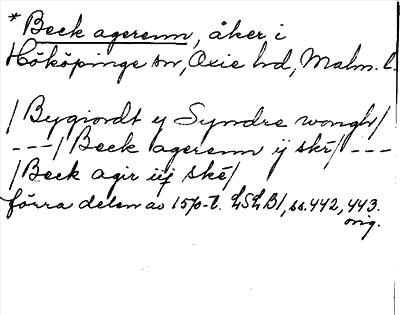 *Beck agerenn, åker i
Hököpinge sn, Oxie hd, Malm. l.
/Bygiordt y Syndre wongh/
---/Beck agerenn ij skē/---
/Beck agir iij skē/
förra delen av 1570-t. LSLB1, ss. 442, 443.
orig.